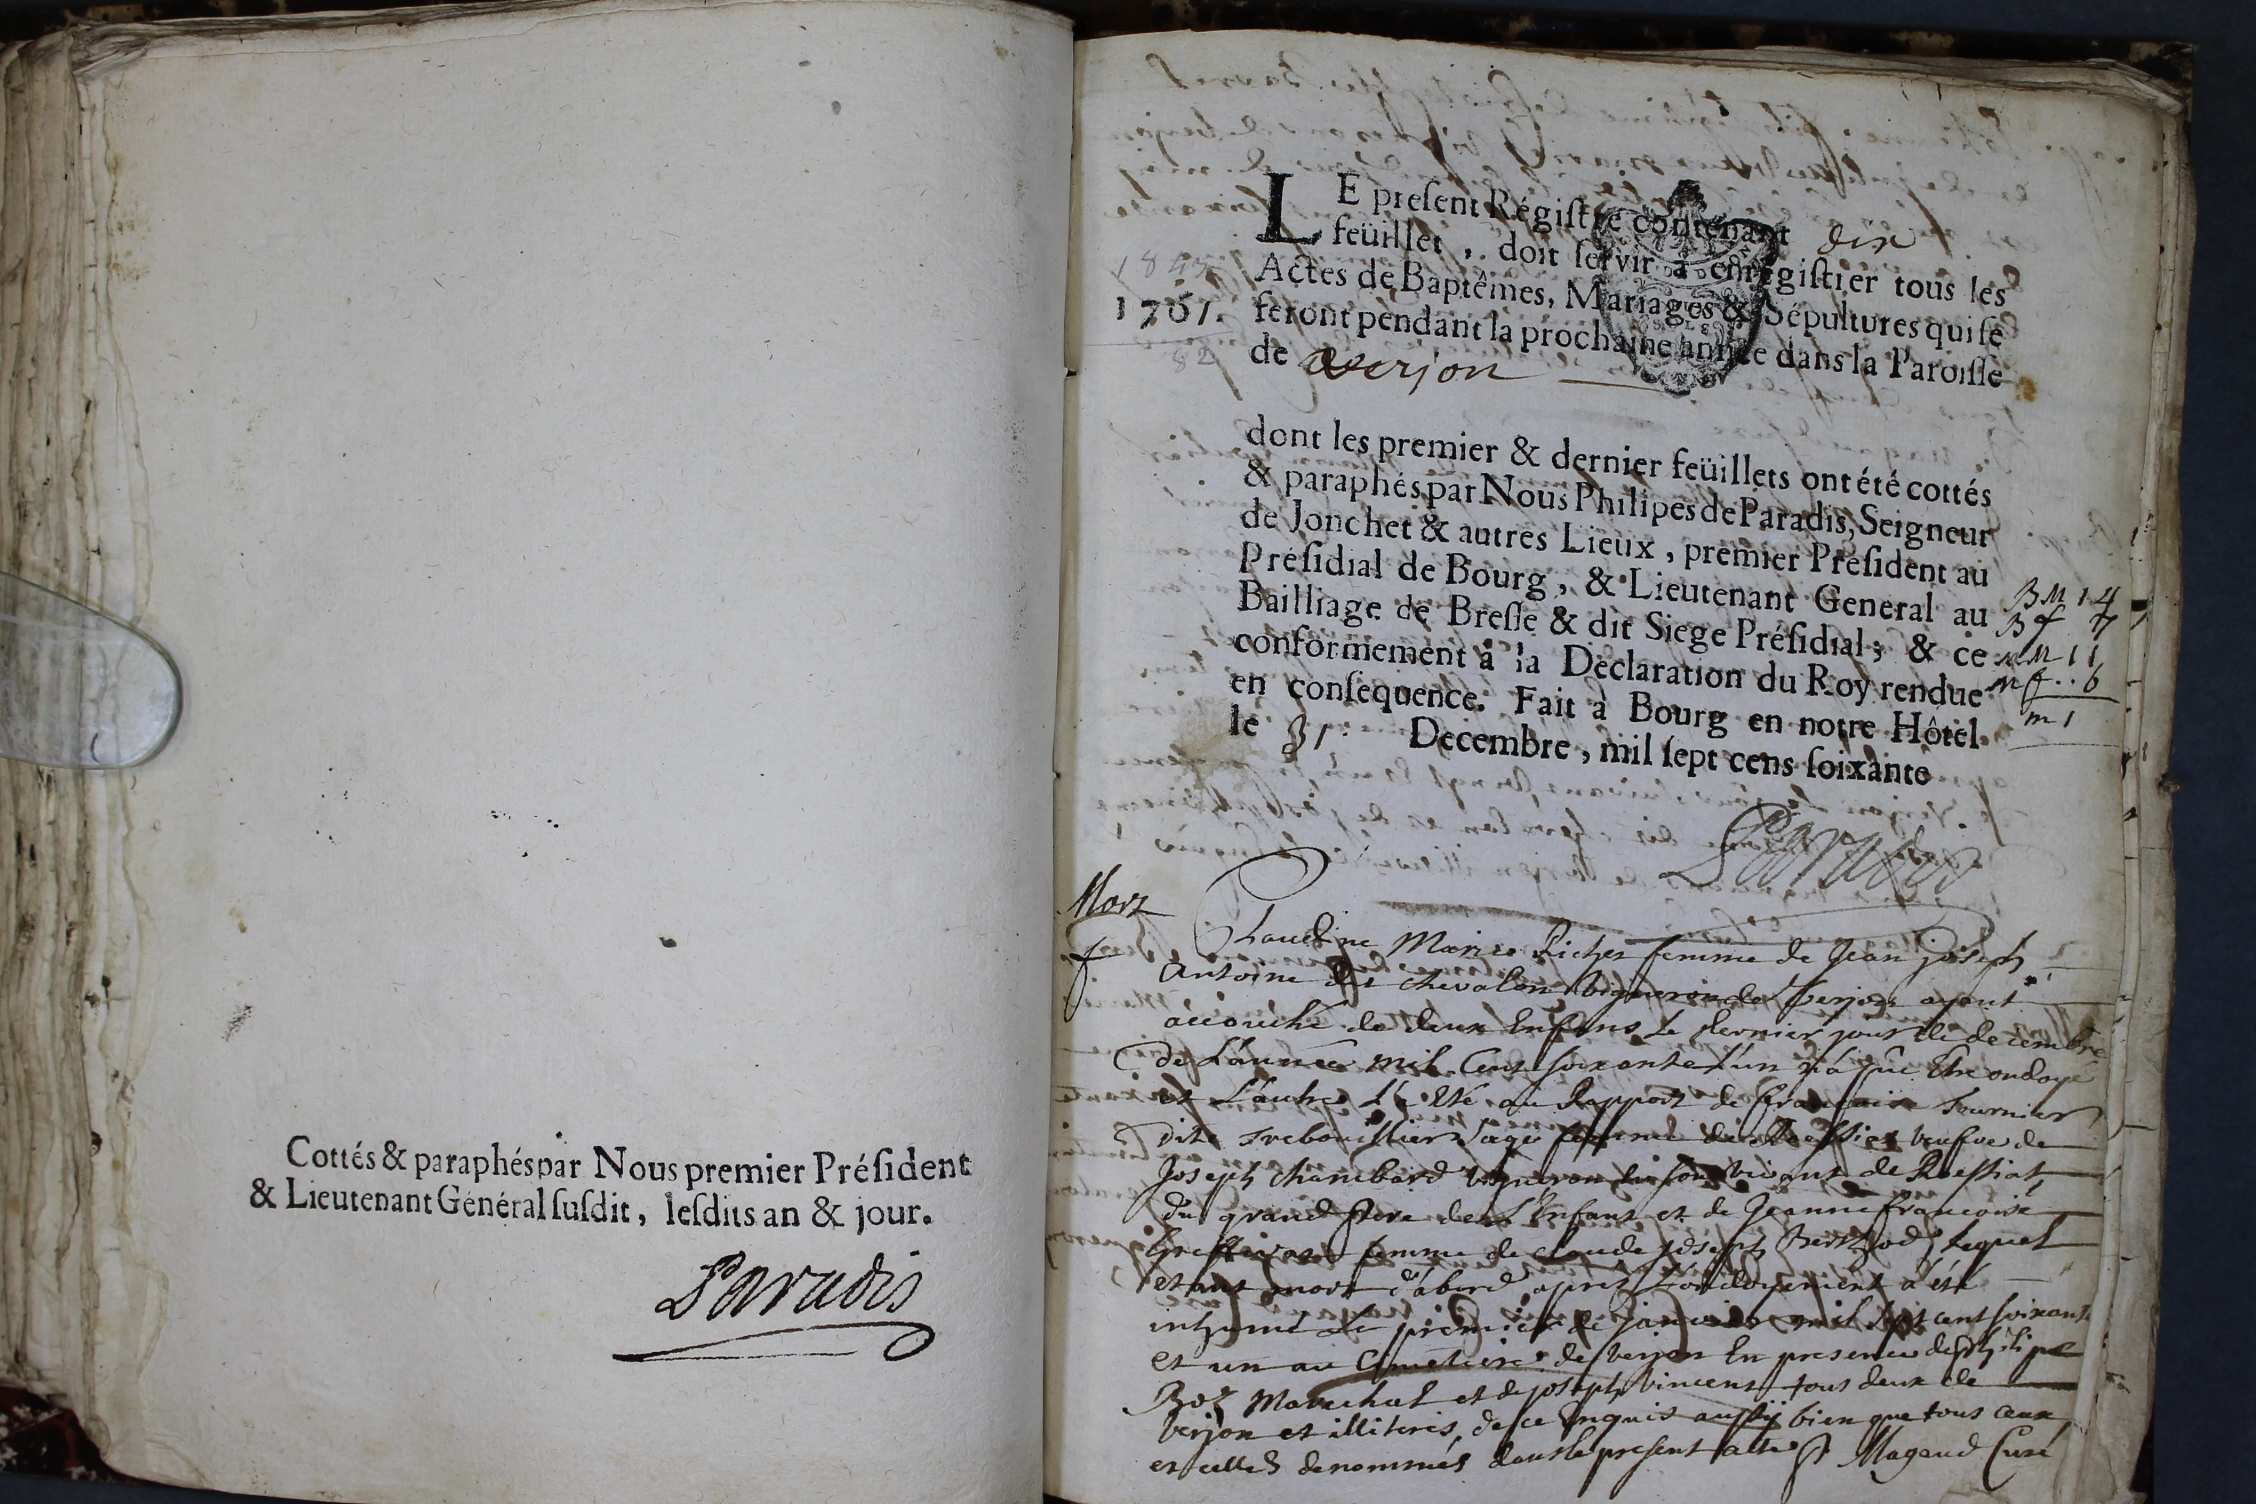 Cottés & paraphés par Nous premier Préſident
& Lieutenant Général ſuſdit, leſdits an & jour.
Paradis
LE preſent Régiſtre contenant dix
feüillet, doit ſervir à enregiſtrer tous les
Actes de Baptêmes, Mariages & Sépultures qui ſe
1761.
feront pendant la prochaine année dans la Paroiſſe
de verjon
dont les premier & dernier feüillets ont été cottés
& paraphés par Nous Philipes de Paradis, Seigneur
de Jonchet & autres Lieux, premier Préſident au
Préſidial de Bourg, & Lieutenant General au
Bailliage de Breſſe & dit Siege Préſidial; & ce
conformement à la Declaration du Roy rendue
en conſequence. Fait à Bourg en notre Hôtel
le 31 Decembre, mil ſept cens ſoixante
BM 14
Bf 7
MM 11
Mf .. 6
m 1
Paradis
Mort
f
Claudine Marie Richer femme de Jean joseph
antoine dit chevalon vigneron de verjon ayant
accouché de deux Enfans le dernier jour de decembre
de L'année mil cent soixante L'un n'a pû être ondoyé
et L'autre L'a Eté au Rapport de francoise fournier
dite Trebouillier sage femme de veufve de
Joseph chanebard vigneron en son vivant de Roissiat
du grand Pere de L'Enfant et de Jeanne francoise
femme de claude joseph Berthod, Lequel
etant mort d'abord après L'ondoyement a été
inhumé Le premier de janvier mil sept cent soixante
et un au Cimetiere de verjon En presence de philipe
Boz Marechal et de joseph vincent tous deux de
verjon et illiterés, de ce Enquis aussy bien que tous ceux
et celles denommés dans le present acte Magaud Curé